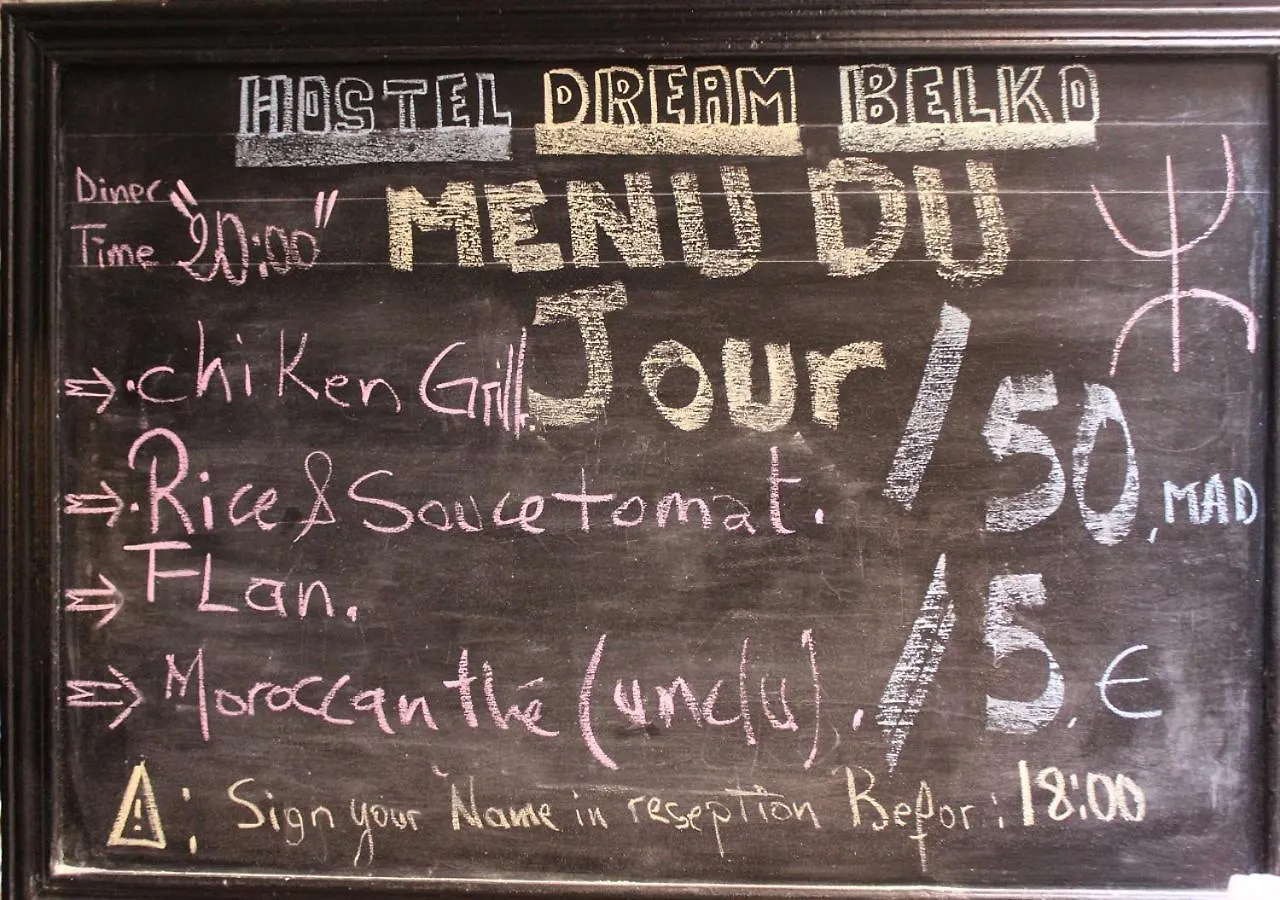 HOSTEL DREAM BELKO
Diner
Time "20:00"
MENU DU
Jour
⇒.chiken Grill.
⇒.Rice & Souce tomat.
⇒ FLan.
⇒ Moroccan thé (unclu).
/50, MAD
/5, €
⚠: Sign your Name in reseption Befor: 18:00